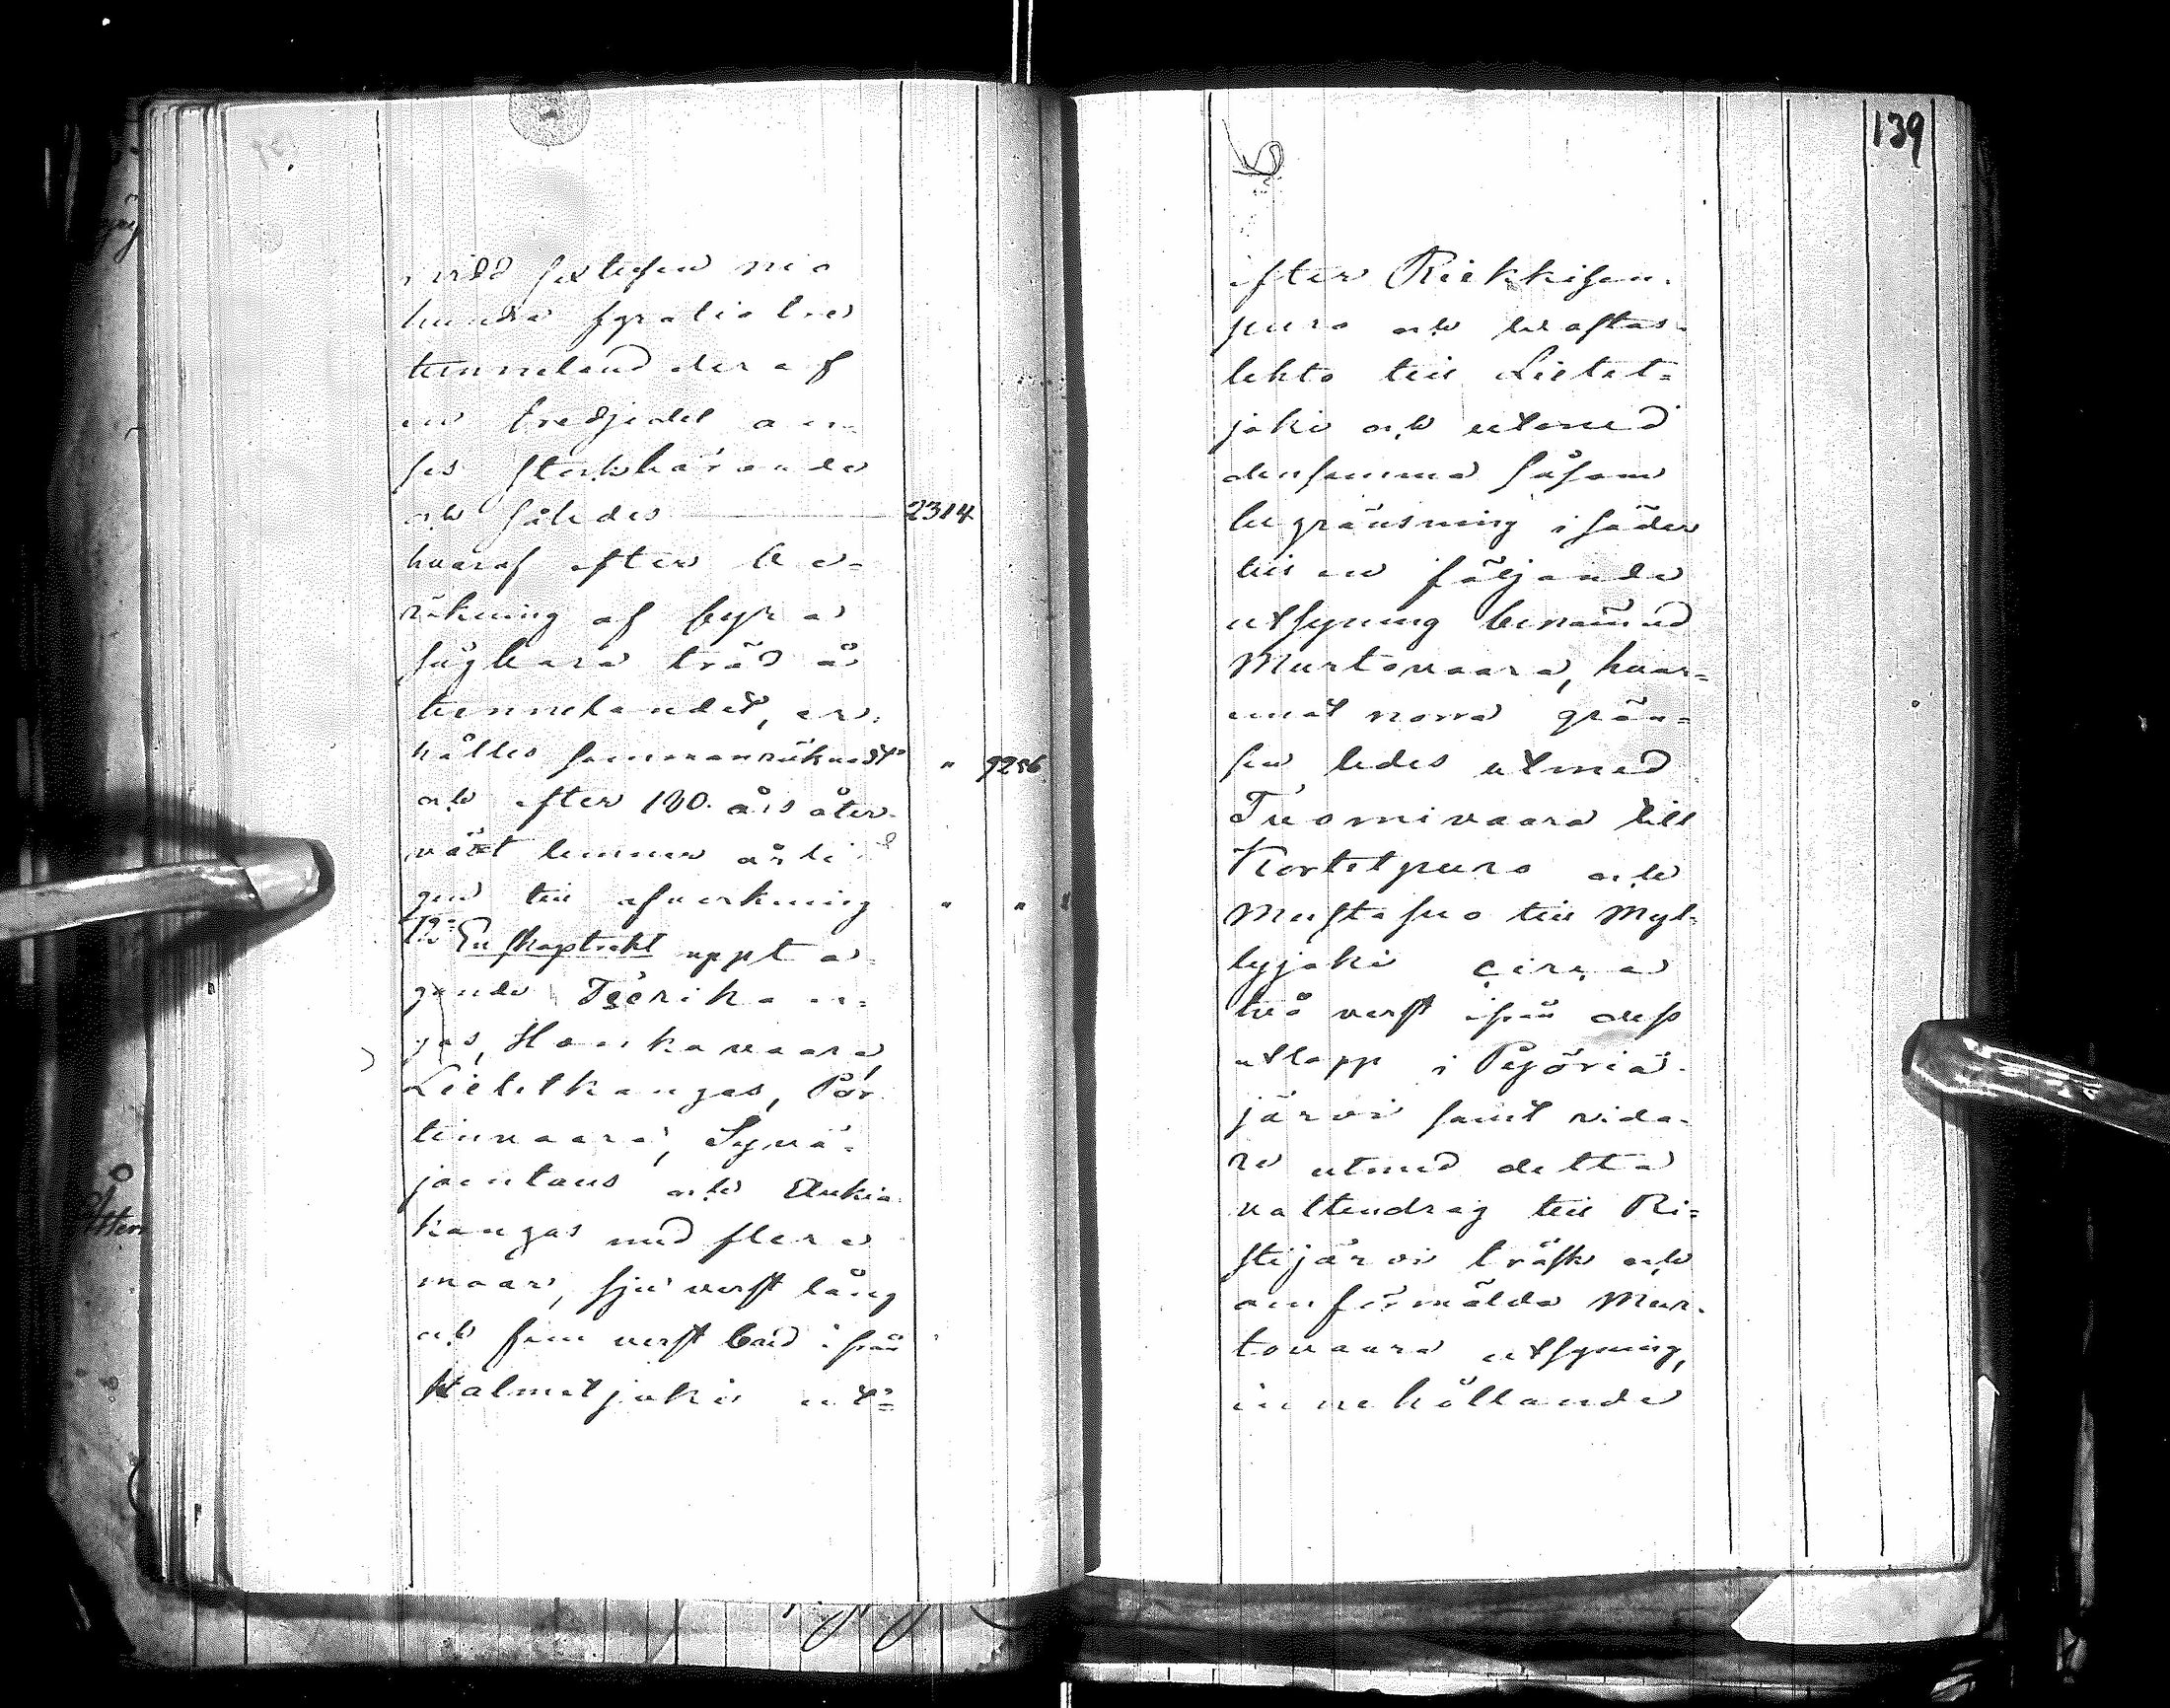 vidd sextusen nio
hundra fyratiotvå
tunneland deraf
en tredjedel an-
ses stockbärande
och således 2314
hvaraf efter be-
räkning af fyra
sågbara träd å
tunnelandet, er-
hålles sammanräknadt " 9256
och efter 180 års åter-
växt lemnar årli-
gen till afverkning " " "
12:o En skogstrakt uppta-
gande Teerikan-
gas, Honkavaara,
Lietetkangas, Por-
tinvaara, Syvä-
jöentaus och Aukia-
kangas med flera
maar, sju verst lång
och fem verst bred ifrån
Halmetjoki ut-
139
efter Riekkisen-
puro och Wastas-
lehto till Lietet-
joki och utmed
densamma såsom
begränsning i söder
till en följande
utsyning benämnd
Murtovaara, hvar-
emot norra grän-
sen ledes utmed
Tuomivaara till
Kortetpuro och
Mustasuo till Myl-
lyjoki circa
två verst ifrån dess
utlopp i Pyöriä-
järvi samt vida-
re utmed detta
vattendrag till Ri-
stijärvi träsk och
omförmälda Mur-
tovaara utsyning,
innehållande